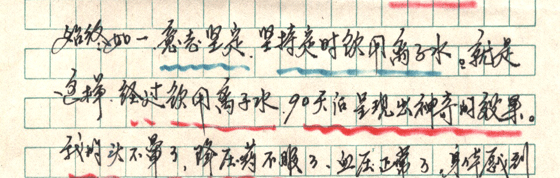 始终如一意志坚定.坚持定时饮用离子水。就是
这样.经过饮用离子水.90天后呈现出神奇的效果。
我的头不晕了,降压药不服了、血压正常了,身体感到